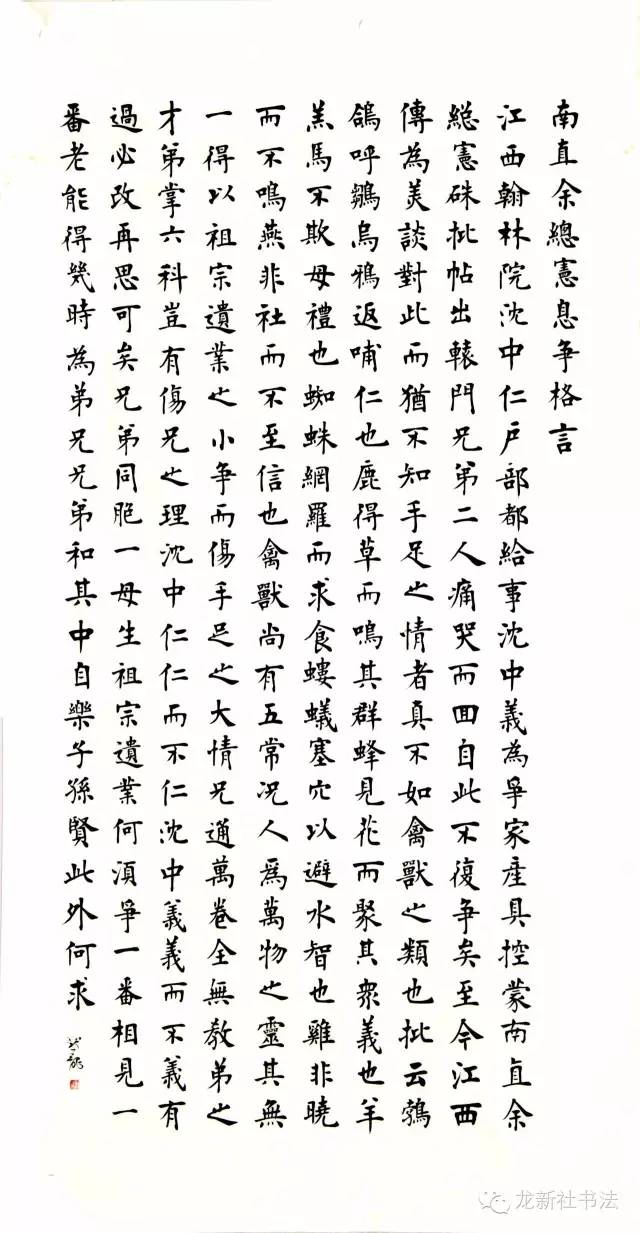 南直余總憲息争格言
江西翰林院沈中仁户部都給事沈中義為爭家產具控蒙南直余
總憲硃批帖出轅門兄弟二人痛哭而回自此不復争矣至今江西
傳為美談對此而猶不知手足之情者真不如禽獸之類也批云鵓
鴿呼鶵烏鴉返哺仁也鹿得草而鳴其群蜂見花而聚其衆義也羊
羔馬不欺母禮也蜘蛛網羅而求食螻蟻塞穴以避水智也雞非曉
而不鳴燕非社而不至信也禽獸尚有五常况人爲萬物之靈其無
一得以祖宗遺業之小争而傷手足之大情兄通萬卷全無教弟之
才弟掌六科豈有傷兄之理沈中仁仁而不仁沈中義義而不義有
過必改再思可矣兄弟同胞一母生祖宗遺業何須爭一番相見一
番老能得幾時為弟兄兄弟和其中自樂子孫賢此外何求
龙新社书法